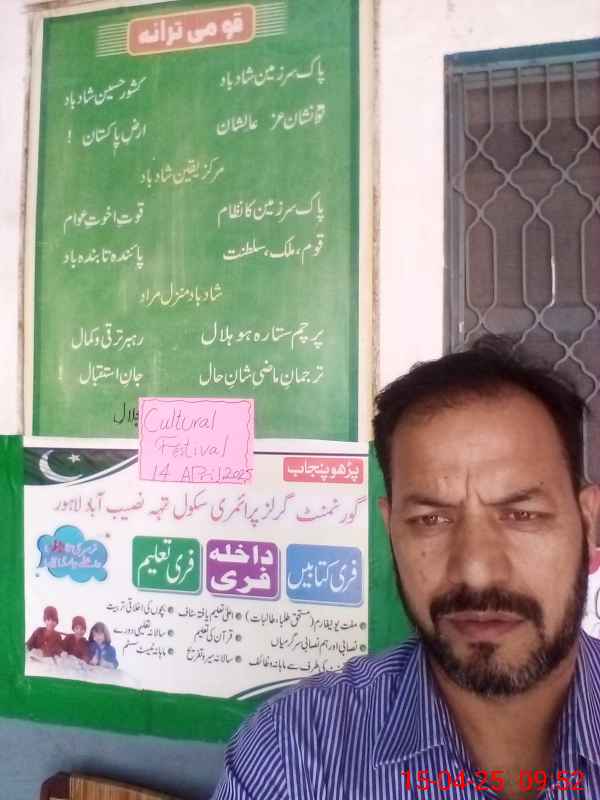 قومی ترانہ
پاک سرزمین شاد باد
کشور حسین شاد باد
تو نشان عز عالیشان
ارض پاکستان !
مرکز یقین شاد باد
پاک سرزمین کا نظام
قوت اخوت عوام
قوم، ملک، سلطنت
پائندہ تابندہ باد
شاد باد منزل مراد
پرچم ستارہ ہو ہلال
رہبر ترقی و کمال
ترجمان ماضی شان حال
جان استقبال !
Cultural
Festival
14 April 2025
پڑھو پنجاب
گورنمنٹ گرلز پرائمری سکول تہہ نصیب آباد لاہور
فری کتابیں
داخلہ فری
فری تعلیم
مفت یونیفارم (مستحق طلبا، طالبات)
اعلیٰ تعلیم یافتہ سٹاف
بچوں کی اخلاقی تربیت
نصابی اور ہم نصابی سرگرمیاں
قرآن کی تعلیم
سالانہ تعلیمی دورے
کی طرف سے ماہانہ وظائف
سالانہ سیر و تفریح
ماہانہ ٹیسٹ سسٹم
15-04-25 09:52